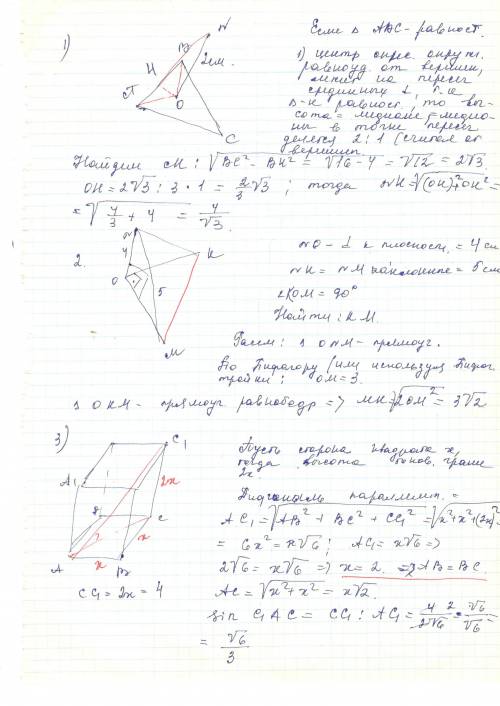 1)
N
B
H
2см.
A
O
C
Если Δ ABC - равност.
1) центр опис. окруж.
равноуд от вершин,
лежит на перес
срединных ⊥, т.к
Δ-к равност, то вы-
сота = медиане = медиа-
ны в точке перес
делятся 2:1 (считая от
вершин
Найдем CH: √BC² - BH² = √16 - 4 = √12 = 2√3.
OH = 2√3 : 3 * 1 = 2/3 √3 ; тогда NH = √(OH)² + OH² =
= √4/3 + 4 = 4/√3.
2.
N
4
K
O
5
M
NO - ⊥ к плоскост. = 4 см
NK = NM наклонные = 5 см
∠KOM = 90°
Найти: KM.
Рассм: Δ ONM - прямоуг.
По Пифагору (или используя Пифаг
тройки: OM = 3.
Δ OKM - прямоуг равнобедр => MK = √2OM² = 3√2
3)
C1
A1
2x
B
C
x
A
x
B
CC1 = 2x = 4
Пусть сторона квадрата x,
тогда высота боков. грани
2x.
Диагональ параллелеп. =
AC1 = √AB² + BC² + CC1² = √x² + x² + (2x)²
= 6x² = x√6 ; AC1 = x√6 =>
2√6 = x√6 => x = 2. => AB = BC.
AC = √x² + x² = x√2.
Sin C1AC = CC1 : AC1 = 4/2√6 = 2/√6 * √6/√6
= √6/3